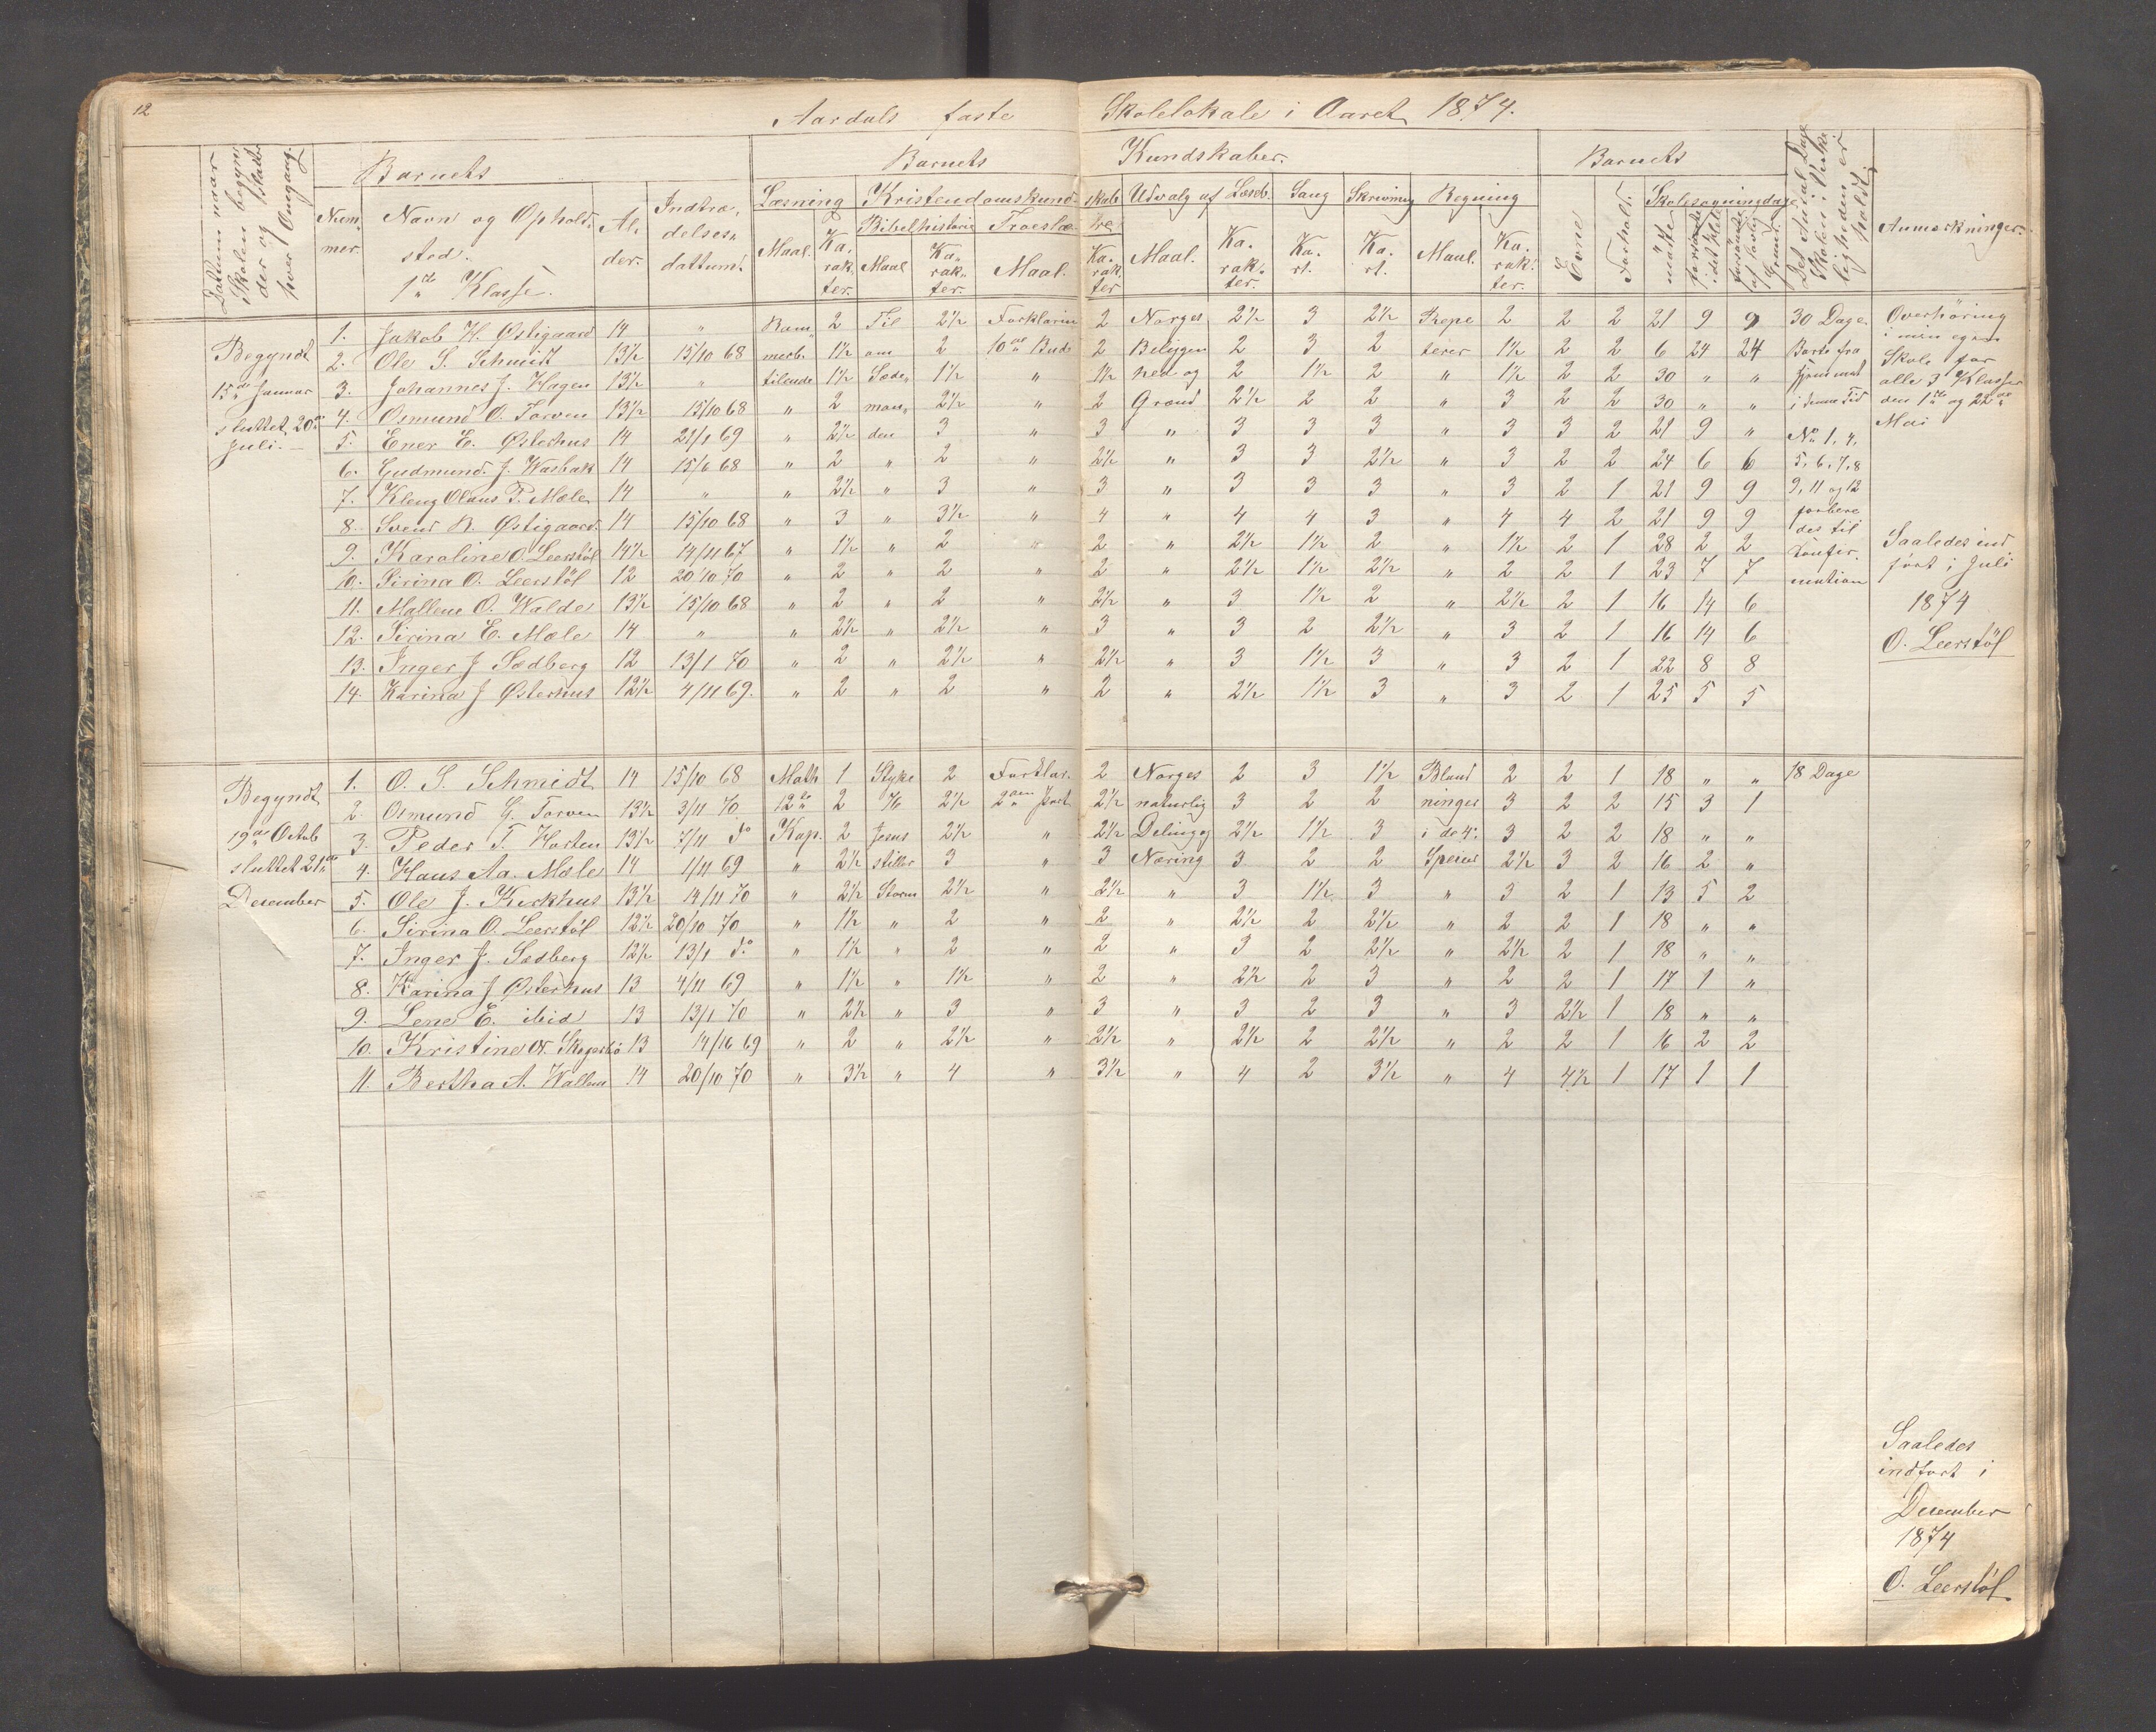 12
Aardals faste Skolelokale i Aaret 1874.
Datum naar Skolen begynder og slutter hver Omgang.
Barnets
Barnets Kundskaber.
Barnets
Det Antal Dage Skolen i Virkeligheden er holdt.
Anmærkninger.
Nummer. Navn og Opholdssted. Alder. Indtrædelsesdattum.
Læsning Kristendomskundskab Udvalg af Læseb. Sang Skrivning Regning Evne Forhold. Skolesøgningsdage
Bibelhistorie Troeslære
Maal. Karakter. Maal Karakter. Maal. Karakter Maal. Karakter. Kart. Kart. Maal. Karakter. mødte forsømte i det Hele forsømte af lovlig Grund.
1ste Klasse.
Begyndt 15de Januar sluttet 20de Juli.
1. Jakob H. Østigaard 14 " Ram 2 Til 2½ Forklarin 2 Norges 2½ 3 2½ Repe 2 2 2 21 9 9 30 Dage
2. Ole S. Schmidt 13½ 15/10 68 merb. 1½ om 2 10de Bud 2 Beliggen 2 3 2 terer 1½ 2 2 6 24 24 Borte fra
3. Johannes J. Hagen 13½ " tilende 1½ Sæde 1½ " 1½ hed og 2 1½ 2 " 1½ 2 2 30 " " Hjemmet
4. Osmund O. Torven 13½ 15/10 68 " 2 man 2½ " 2 Grænd 2½ 2 2 " 3 2 2 30 " " i denne Tid
5. Ener E. Østerhus 14 21/1 69 " 2½ den 3 " 3 " 3 3 3 " 3 3 2 21 9 " No 1, 4,
6. Gudmund J. Wasbak 14 15/6 68 " 2 " 2 " 2½ " 3 3 2½ " 3 2 2 24 6 6 5, 6, 7, 8
7. Kleng Olaus T. Mæle 14 " " 2½ " 3 " 3 " 3 3 3 " 3 2 1 21 9 9 9, 11 og 12
8. Svend R. Østigaard 14 15/10 68 " 3 " 3½ " 4 " 4 4 3 " 4 4 2 21 9 9 forbere
9. Karoline O. Leerstøl 14½ 14/11 67 " 1½ " 2 " 2 " 2½ 1½ 2 " 1½ 2 1 28 2 2 des til
10. Sirina O. Leerstøl 12 20/10 70 " 2 " 2 " 2 " 2½ 1½ 2½ " 2 2 1 23 7 7 Confir
11. Mallene O. Walde 13½ 15/10 68 " 2 " 2 " 2½ " 3 1½ 2 " 2½ 2 1 16 14 6 mation
12. Sirina E. Mæle 14 " " 2½ " 2½ " 3 " 3 2 2½ " 3 2 1 16 14 6
13. Inger J. Sædberg 12 13/1 70 " 2 " 2½ " 2½ " 3 1½ 3 " 3 2 1 22 8 8
14. Karina J Østerhus 12½ 4/11 69. " 2 " 2 " 2 " 2½ 1½ 3 " 3 2 1 25 5 5
Overhøring
i min egen
Skole for
alle 3 Klasser
den 1ste og 22de
Mai
Saaledes ind
ført i Juli
1874
O. Leerstøl
Begyndt 19de Octob sluttet 21de December
1. O. S. Schmidt 14 15/10 68 Math 1 Styke 2 Forklar. 2 Norges 2 3 1½ Bland 2 2 1 18 " " 18 Dage
2. Osmund G. Torven 13½ 3/11 70 12te 2 76 2½ 2den Part 2½ naturlig 3 2 2 ninger 3 2 2 15 3 1
3. Peder T. Horten 13½ 7/11 do Kap. 2 Jesus 2½ " 2½ Deling og 2½ 1½ 3 i de 4 3 2 2 18 " "
4. Hans Aa. Mæle 14 1/11 69 " 2½ stiller 3 " 3 Næring 3 2 2 Speies 2½ 3 2 16 2 "
5. Ole J. Kirkhus 13½ 14/11 70 " 2½ Storm 2½ " 2½ " 3 1½ 3 " 3 2 1 13 5 2
6. Sirina O. Leerstøl 12½ 20/10 70 " 1½ " 2 " 2 " 2½ 2 2½ " 2 2 1 18 " "
7. Inger J. Sædberg 12½ 13/1 do " 1½ " 2 " 2 " 3 2 2½ " 2½ 2 1 18 " "
8. Karina J Østerhus 13 4/11 69 " 1½ " 1½ " 2 " 2½ 2 3 " 2 2 1 17 1 "
9. Lene E. ibid 13 13/1 70 " 2½ " 3 " 3 " 3 2 3 " 3 2½ 1 18 " "
10. Kristine O. 13 14/16 69 " 2 " 2½ " 2½ " 2½ 2 2½ " 2 2 1 16 2 2
11. Bertha A. Wallem 14 20/10 70 " 3½ " 4 " 3½ " 4 2 3½ " 4 4½ 1 17 1 1
Saaledes
indført i
December
1874
O. Leerstøl